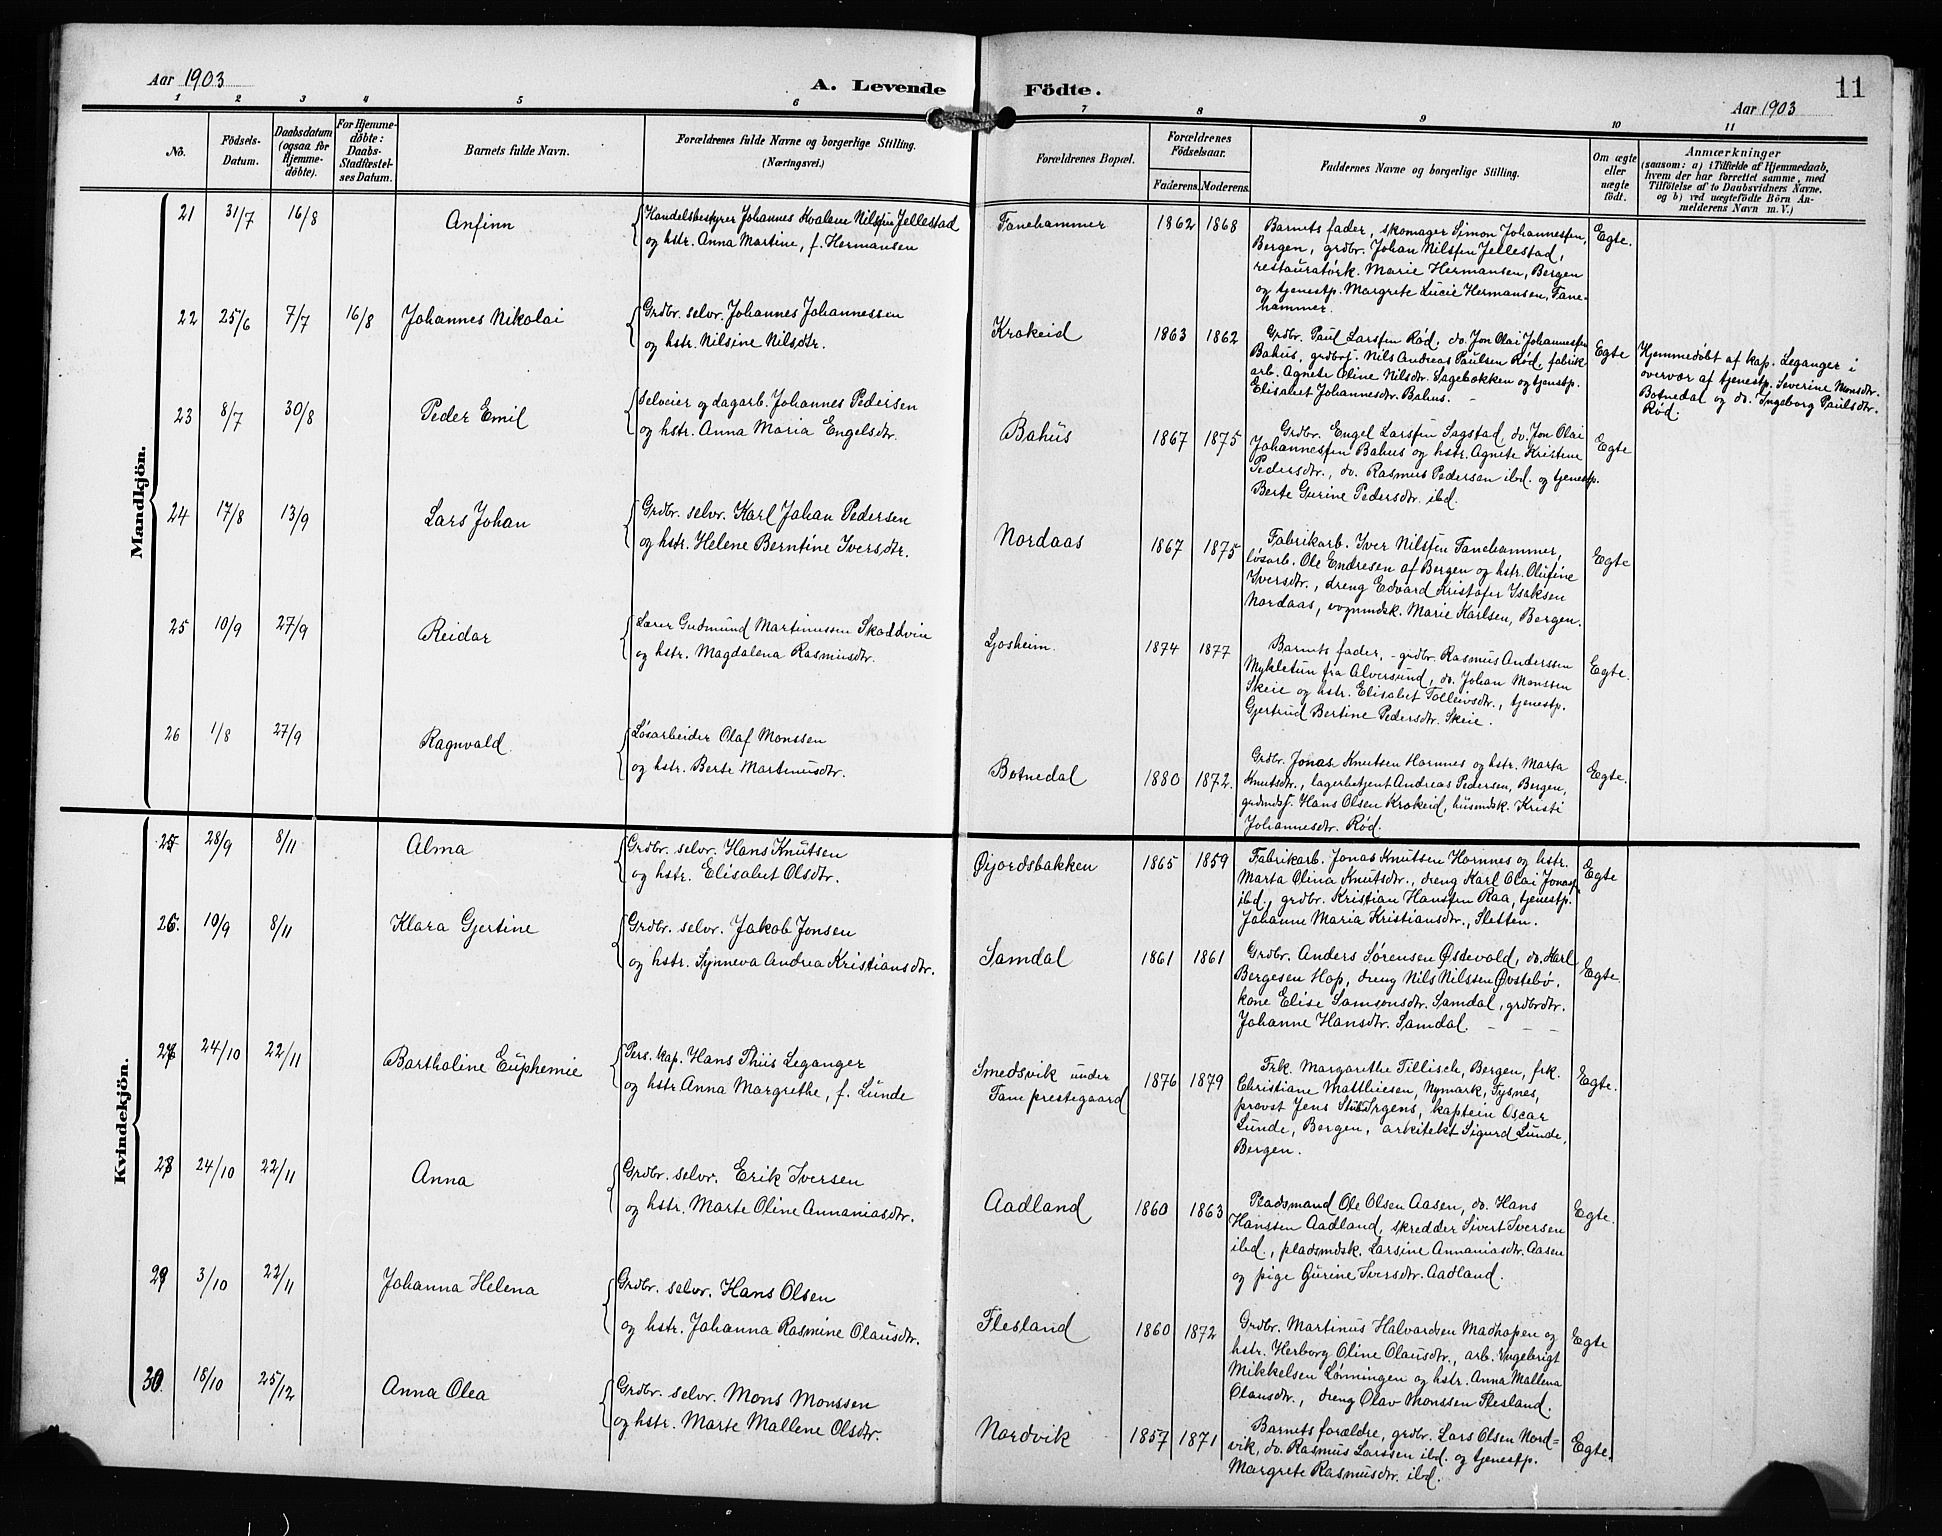 Aar 1903
A. Levende Födte.
11
Aar 1903
1 2 3 4 5 6 7 8 9 10 11
No.
Födsels-
Datum.
Daabsdatum
(ogsaa for
Hjemme-
døbte).
For Hjemme-
døbte:
Daabs-
Stadfæstel-
ses Datum.
Barnets fulde Navn.
Forældrenes fulde Navne og borgerlige Stilling.
(Næringsvei.)
Forældrenes Bopæl.
Forældrenes
Födselsaar.
Faderens. Moderens.
Faddernes Navne og borgerlige Stilling.
Om ægte
eller
uægte
født.
Anmærkninger
(saasom: a) i Tilfælde af Hjemmedaab,
hvem der har forrettet samme, med
Tilföielse af to Daabsvidners Navne,
og b) ved uægtefödte Börn An-
melderens Navn m. V.)
Mandkjön.
21 31/7 16/8 Anfinn
Handelsbestyrer Johannes Kvalene Nilssen Jellestad
og hstr. Anna Martine, f. Hermansen
Fanehammer 1862 1868
Barnets fader, skomager Simon Johannessen,
Bergen, grdbr. Johan Nilssen Jellestad,
restauratørk. Marie Hermansen, Bergen
og tjenestp. Margrete Lucie Hermansen, Fane-
hammer.
Egte.
22 25/6 7/7 16/8 Johannes Nikolai
Grdbr. selvr. Johannes Johannessen
og hstr. Nilsine Nilsdtr.
Krokeid 1863 1862
Grdbr. Paul Larssen Rød, do. Jon Olai Johannessen
Bahus, grdbrs. Nils Andreas Paulsen Rød, fabrik-
arb. Agnete Oline Nilsdtr. Sagebakken og tjenestp.
Elisabet Johannesdtr. Bahus.
Egte
Hjemmedøbt af kap. Leganger i
overvær af tjenestp. Severine Monsdtr.
Botnedal og do. Ingeborg Paulsdtr.
Rød.
23 8/7 30/8 Peder Emil
Selveier og dagarb. Johannes Pedersen
og hstr. Anna Maria Engelsdtr.
Bahus 1867 1875
Grdbr. Engel Larssen Sagstad, do. Jon Olai
Johannessen Bahus og hstr. Agnete Kristine
Pedersdtr., do. Rasmus Pedersen ibd. og tjenestp.
Berte Gurine Pedersdtr. ibd.
Egte
24 17/8 13/9 Lars Johan
Grdbr. selvr. Karl Johan Pedersen
og hstr. Helene Berntine Iversdtr.
Nordaas 1867 1875
Fabrikarb. Iver Nilssen Fanehammer,
løsarb. Ole Endresen af Bergen og hstr. Olufine
Iversdtr., dreng Edvard Kristofer Isaksen
Nordaas, vognmdsk. Marie Karlsen, Bergen.
Egte
25 10/9 27/9 Reidar
Lærer Gudmund Martinussen Skaddvin
og hstr. Magdalena Rasmusdtr.
Ljosheim. 1874 1877
Barnets fader, grdbr. Rasmus Anderssen
Mykletun fra Alversund, do. Johan Monssen
Skeie og hstr. Elisabet Tolleivsdtr., tjenestp.
Gjertrud Bertine Pedersdtr. Skeie.
Egte.
26 1/8 27/9 Ragnvald.
Løsarbeider Olaf Monssen
og hstr. Berte Martinusdtr.
Botnedal 1880 1872
Grdbr. Jonas Knutsen Hornnes og hstr. Marta
Knutsdtr., lagerbetjent Andreas Pedersen, Bergen,
grdmds. Hans Olsen Krokeid, husmdsk. Kristi
Johannesdtr. Rød.
Egte.
Kvindekjön.
25 28/9 8/11 Alma
Grdbr. selvr. Hans Knutsen
og hstr. Elisabet Olsdtr.
Øijordsbakken 1865 1859
Fabrikarb. Jonas Knutsen Hornnes og hstr.
Marta Olina Knutsdtr., dreng Karl Olai Jonass.
ibd., grdbr. Kristian Hanssen Raa, tjenestp.
Johanne Maria Kristiansdtr., Sletten.
Egte
26. 19/9 8/11 Klara Gjertine
Grdbr. selvr. Jakob Jonsen
og hstr. Synneva Andrea Kristiansdtr.
Samdal 1861 1861
Grdbr. Anders Sørensen Østevold, do. Karl
Bergesen Hop, dreng Nils Nilssen Øvstebø.
kone Elise Samsonsdtr. Samdal, grdbrdtr.
Johanne Hansdtr. Samdal.
Egte.
27 24/10 22/11 Bartholine Euphemie
Pers. kap. Hans Thiis Leganger
og hstr. Anna Margrethe, f. Lunde
Smedsvik under
Fane prestegaard 1876 1879
Frk. Margarethe Tillisch, Bergen, frk.
Christiane Matthiesen, Nymark, Tysnes,
provst Jens Stub Irgens, kaptein Oscar
Lunde, Bergen, arkitekt Sigurd Lunde,
Bergen.
Egte.
28 24/10 22/11 Anna
Grdbr. selvr. Erik Iversen
og hstr. Marte Oline Annaniasdtr.
Aadland 1860 1863
Pladsmand Ole Olsen Aasen, do. Hans
Hanssen Aadland, skredder Sivert Iversen
ibd., pladsmdsk. Larsine Annaniasdtr. Aasen
og pige Gurine Iversdtr. Aadland.
Egte.
29 3/10 22/11 Johanna Helena
Grdbr. selvr. Hans Olsen
og hstr. Johanna Rasmine Olausdtr.
Flesland 1860 1872
Grdbr. Martinus Halvardsen Madhopen og
hstr. Herborg Oline Olausdtr., arb. Ingebrigt
Mikkelsen Lønningen og hstr. Anna Mallena
Olausdtr., dreng Olav Monssen Flesland.
Egte
30. 18/10 25/12 Anna Olea
Grdbr. selvr. Mons Monssen
og hstr. Marte Mallene Olsdtr.
Nordvik 1857 1871
Barnets forældre, grdbr. Lars Olsen Nord-
vik, do. Rasmus Larssen ibd. og tjenestp.
Margrete Rasmusdtr. ibd.
Egte.